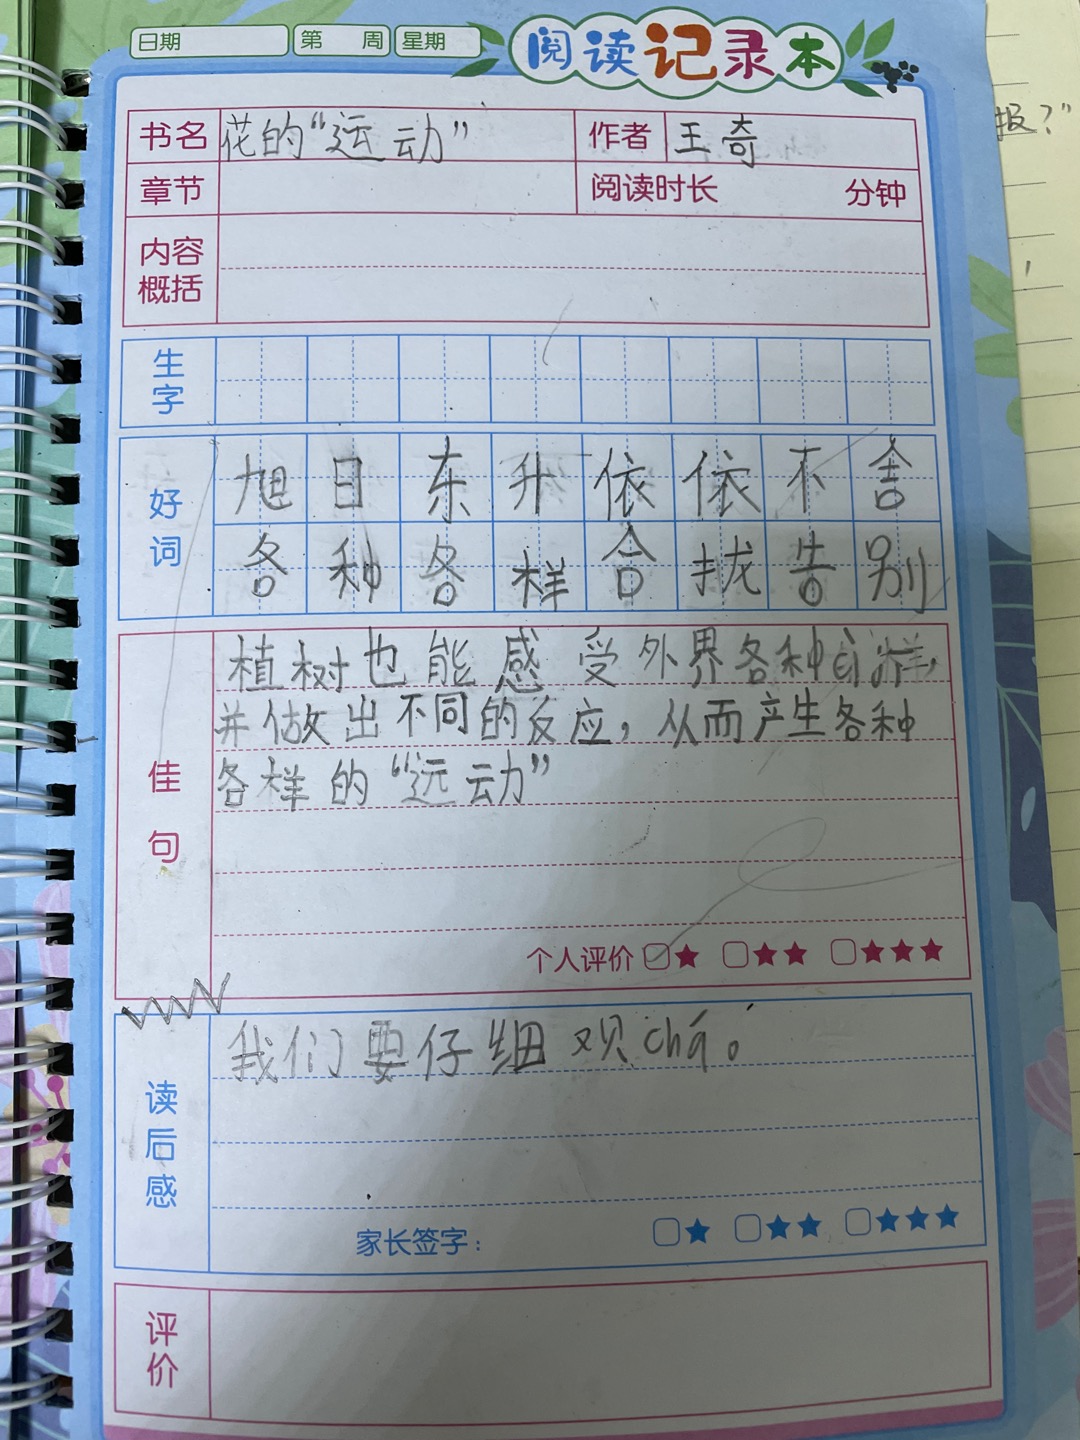 日期 第 周 星期 阅读记录本
报？”
书名 花的“运动” 作者 王奇
章节 阅读时长 分钟
内容
概括
生
字
好
词
旭日东升依依不舍
各种各样合拢告别
佳
句
植树也能感受外界各种
并做出不同的反应，从而产生各种
各样的“远动”
个人评价
读
后
感
我们要仔细观chá。
家长签字：
评
价